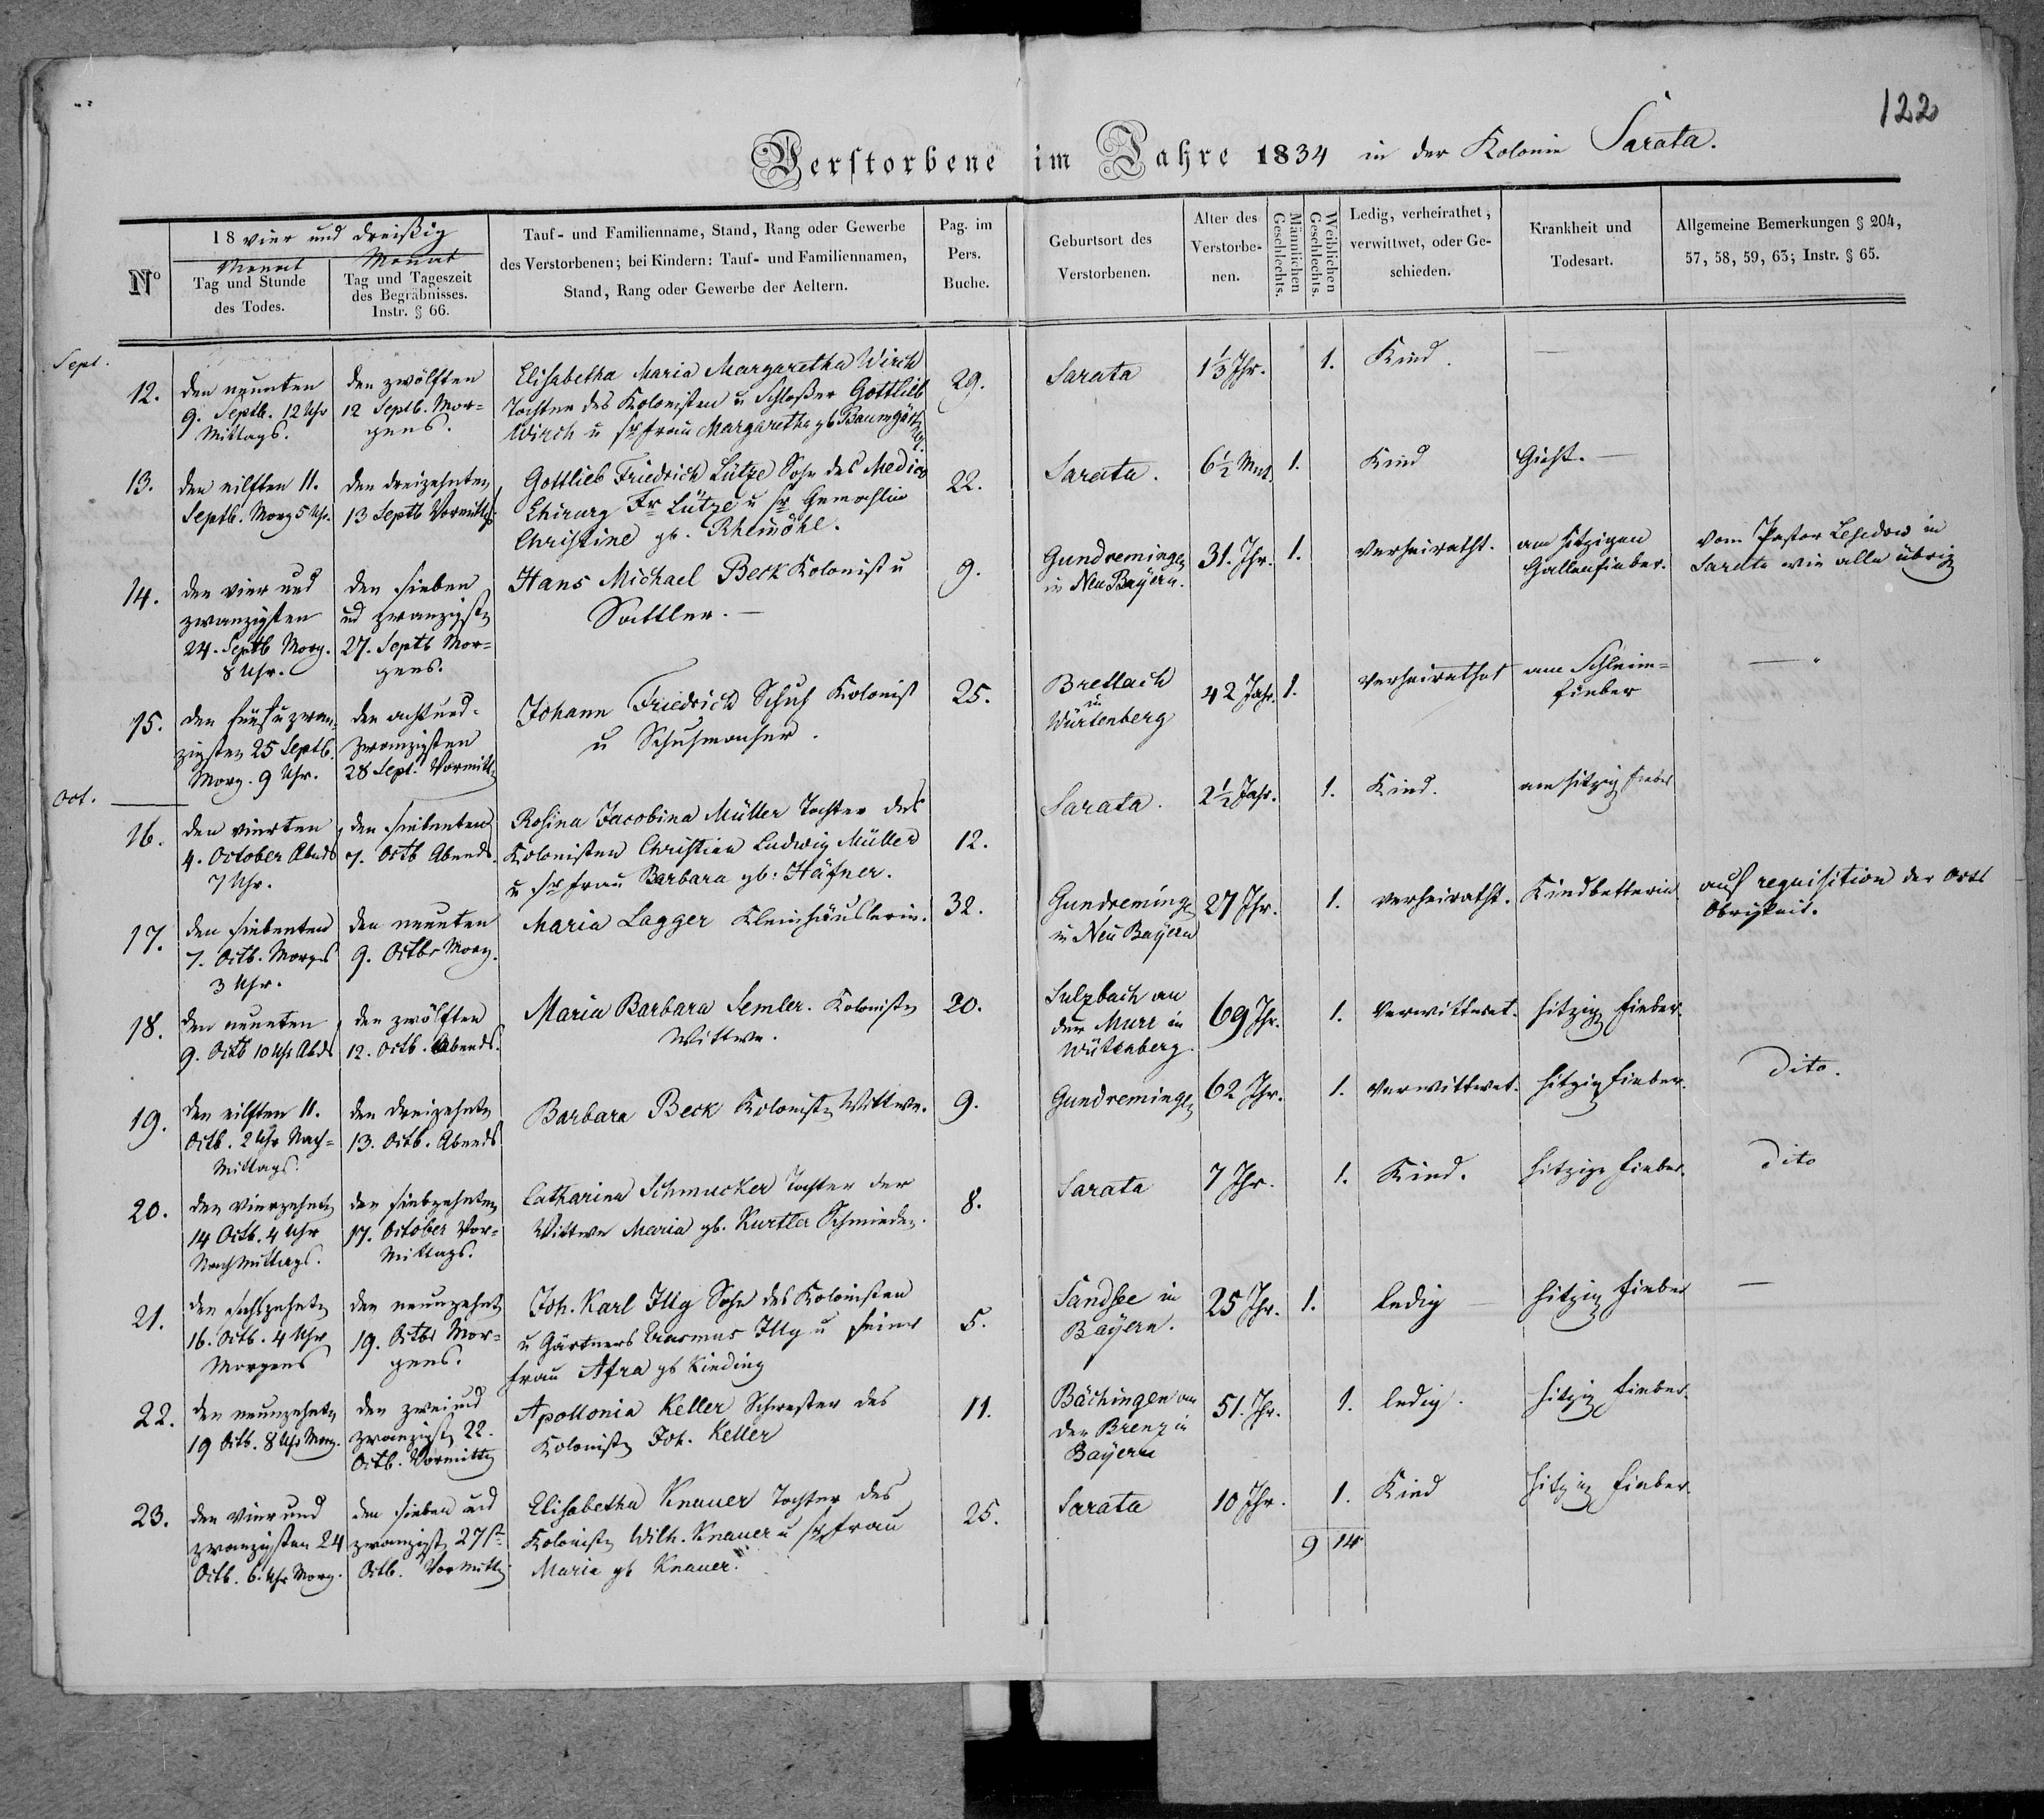 122
Verstorbene im Jahre 1834 in der Kolonie Sarata.
No
18 vier und dreißig
Monat
Tag und Stunde
des Todes.
Monat
Tag und Tageszeit
des Begräbnisses.
Instr. § 66.
Tauf- und Familienname, Stand, Rang oder Gewerbe
des Verstorbenen; bei Kindern: Tauf- und Familiennamen,
Stand, Rang oder Gewerbe der Aeltern.
Pag. im
Pers.
Buche.
Geburtsort des
Verstorbenen.
Alter des
Verstorbe-
nen.
Männlichen
Geschlechts.
Weiblichen
Geschlechts.
Ledig, verheirathet,
verwittwet, oder Ge-
schieden.
Krankheit und
Todesart.
Allgemeine Bemerkungen § 204,
57, 58, 59, 63; Instr. § 65.
Sept.
12.
den neunten
9. Septb. 12 Uhr
Mittags.
den zwölften
12 Septb. Mor-
gens.
Elisabetha Maria Margaretha Wirch
Tochter des Kolonisten u Schloßer Gottlieb
Wirch u sr frau Margaretha gb Baumgärtner
29.
Sarata
1 1/3 Jhr.
1.
Kind.
—
13.
den eilften 11.
Septb. Morg 5 Uhr.
den dreizehnten
13 Septb Vormittgs
Gottlieb Friedrich Lütze Sohn des Medico
Chirurg Fr Lütze u sr Gemahlin
Christine gb. Rheinöhl.
22.
Sarata.
6 1/2 Mnt.
1.
Kind
Gicht. —
14.
den vier und
zwanzigsten
24. Septb Morg.
8 Uhr.
den sieben
und zwanzigsten
27. Septb Mor-
gens.
Hans Michael Beck Kolonist u
Sattler. —
9.
Gundremingen
in Neu Bayern.
31. Jhr.
1.
verheiratht.
am hitzigen
Gallenfieber.
vom Pastor in
Sarata wie alle übrig
15.
den fünfuzwan-
zigsten 25 Septb.
Morg. 9 Uhr.
den acht und-
zwanzigsten
28 Sept. Vormittg
Johann Friedrich Schuh Kolonist
u Schuhmacher.
25.
Brettach
in
Würtenberg
42 Jahr.
1.
verheirathet
am Schleim-
fieber
— "
Oct.
16.
den vierten
4. October Abnds
7 Uhr.
den siebenten
7. Octb Abends.
Rosina Jacobina Müller Tochter des
Kolonisten Christian Ludwig Müller
u sr frau Barbara gb: Häfner.
12.
Sarata.
2 1/2 Jahr.
1.
Kind.
am hitzig fieber
17.
den siebenten
7. Octb. Morgs
3 Uhr.
den neunten
9. Octbr Morg.
Maria Lagger Kleinhäuslerin.
32.
Gundreming
in Neu Bayern
27 Jhr.
1.
verheiratht.
Kindbetterin
auf requisition der Orts
Obrigkeit.
18.
den neunten
9. Octb 10 Uhr Abds
den zwölften
12. Octb. Abends.
Maria Barbara Semler. Kolonisten
Wittwe.
20.
Sulzbach an
der Murr in
Würtenberg.
69 Jhr.
1.
verwittwet.
hitzig fieber.
19.
den eilften 11.
Octb. 2 Uhr Nach-
Mittags.
den dreizehnten
13. Octb. Abends
Barbara Beck Kolonisten Wittwe.
9.
Gundremingen
62 Jhr.
1.
verwittwet.
hitzig fieber.
Dito.
20.
den vierzehnten
14 Octb. 4 Uhr
Nachmittags.
den siebzehnten
17. October Vor-
Mittags.
Catharina Schmucker Tochter der
Wittwe Maria gb. Kurtler
8.
Sarata
7 Jhr.
1.
Kind.
hitzige fieber.
Dito
21.
den sechszehnten
16. Octb. 4 Uhr
Morgens
den neunzehnten
19. Octbr Mor-
gens.
Joh. Karl Illg Sohn des Kolonisten
u Gärtners Erasmus Illg u seiner
frau Afra gb Kieding
5.
Sandsee in
Bayern.
25 Jhr.
1.
ledig —
hitzig fieber
—
22.
den neunzehnten
19 Octb. 8 Uhr Morg.
den zwei und
zwanzigsten 22.
Octb. Vormittg
Apollonia Keller Schwester des
Kolonisten Joh. Keller
11.
Bächingen an
der Brenz in
Bayern
51. Jhr.
1.
ledig.
hitzig fieber.
23.
den vier und
zwanzigsten 24
Octb. 6. Uhr Morg.
den sieben und
zwanzigst 27st
Octb. Vormittg
Elisabetha Knauer Tochter des
Kolonisten Wilh. Knauer u sr frau
Maria gb Knauer.
25.
Sarata
10 Jhr.
1.
Kind
hitzig fieber.
9
14